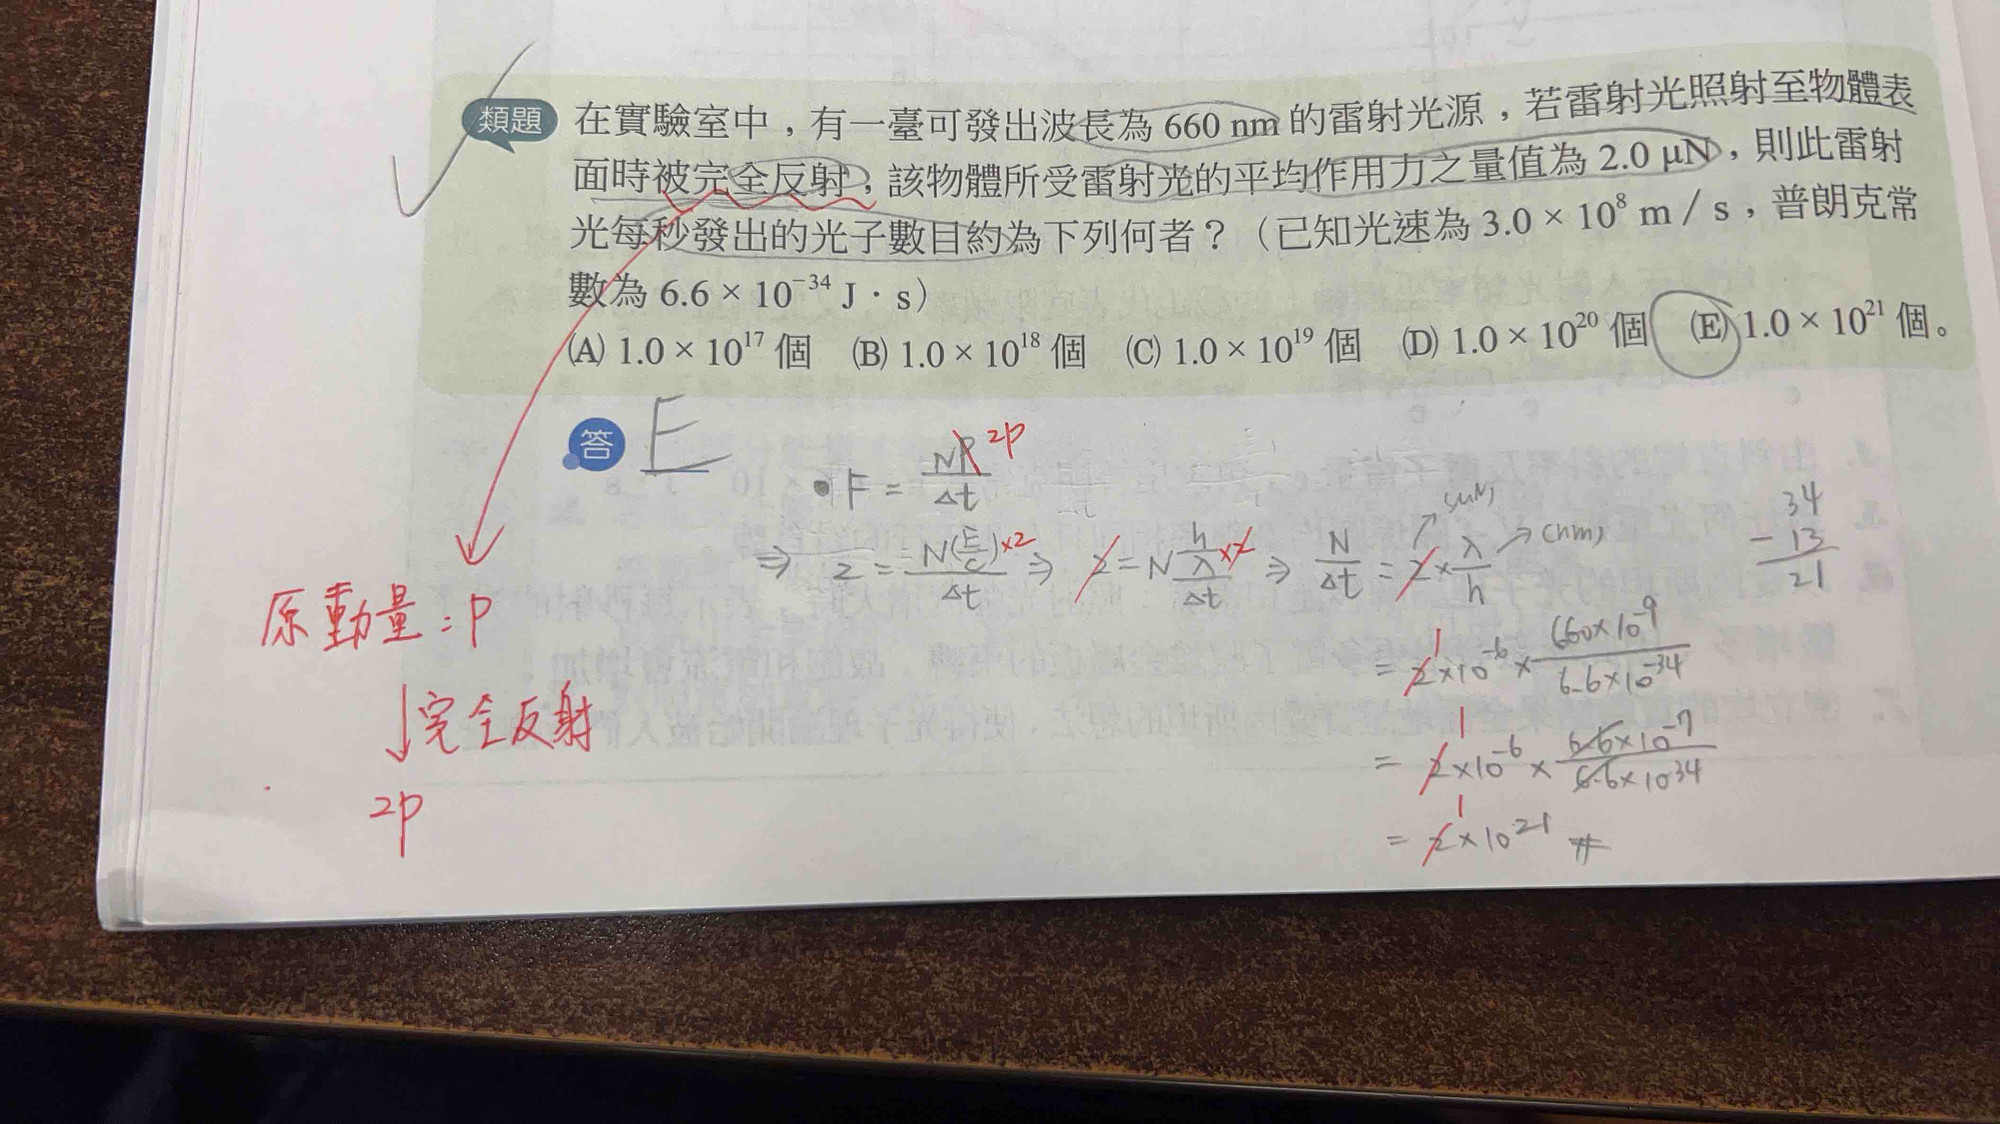 類題 在實驗室中，有一臺可發出波長為 660 nm 的雷射光源，若雷射光照射至物體表
面時被完全反射，該物體所受雷射光的平均作用力之量值為 2.0 μN，則此雷射
光每秒發出的光子數目約為下列何者？（已知光速為 3.0 × 10⁸ m / s，普朗克常
數為 6.6 × 10⁻³⁴ J · s）
(A) 1.0 × 10¹⁷ 個 (B) 1.0 × 10¹⁸ 個 (C) 1.0 × 10¹⁹ 個 (D) 1.0 × 10²⁰ 個 (E) 1.0 × 10²¹ 個。
答 E
F = NP/Δt 2p
⇒ 2 = N(E/c)×2/Δt ⇒ 2 = N h/λ ×2/Δt ⇒ N/Δt = 2 × λ/h (μN) (nm)
= 2 1 × 10⁻⁶ × 660×10⁻⁹/6.6×10⁻³⁴
= 2 1 × 10⁻⁶ × 6.6×10⁻⁷/6.6×10³⁴
= 2 1 × 10²¹ #
34
- 13
21
原動量 = p
↓完全反射
2p